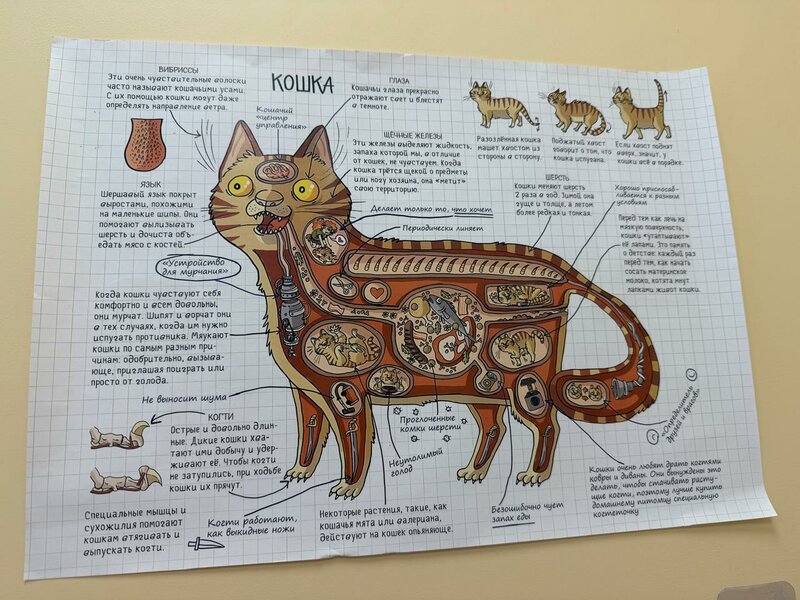 ВИБРИССЫ
Эти очень чувствительные волоски
часто называют кошачьими усами.
С их помощью кошки могут даже
определять направление ветра.
КОШКА
Кошачий
«центр
управления»
ГЛАЗА
Кошачьи глаза прекрасно
отражают свет и блестят
в темноте.
ЩЁЧНЫЕ ЖЕЛЕЗЫ
Эти железы выделяют жидкость,
запаха которой мы, в отличие
от кошек, не чувствуем. Когда
кошка трётся щекой о предметы
или ногу хозяина, она "метит"
свою территорию.
Разозлённая кошка
машет хвостом из
стороны в сторону.
Поджатый хвост
говорит о том, что
кошка испугана.
Если хвост поднят
вверх, значит, у
кошки всё в порядке.
ЯЗЫК
Шершавый язык покрыт
выростами, похожими
на маленькие шипы. Они
помогают вылизывать
шерсть и дочиста объ-
едать мясо с костей.
Делает только то, что хочет
Периодически линяет
ШЕРСТЬ
Кошки меняют шерсть
2 раза в год. Зимой она
гуще и толще, а летом
более редкая и тонкая.
Хорошо приспосаб-
ливается к разным
условиям
Перед тем как лечь на
мягкую поверхность,
кошки «утаптывают»
её лапами. Это память
о детстве: каждый раз
перед тем, как начать
сосать материнское
молоко, котята мнут
лапками живот кошки.
«Устройство
для мурчания»
Когда кошки чувствуют себя
комфортно и всем довольны,
они мурчат. Шипят и ворчат они
в тех случаях, когда им нужно
испугать противника. Мяукают
кошки по самым разным при-
чинам: одобрительно, вызыва-
юще, приглашая поиграть или
просто от голода.
Не выносит шума
КОГТИ
Острые и довольно длин-
ные. Дикие кошки хва-
тают ими добычу и удер-
живают её. Чтобы когти
не затупились, при ходьбе
кошки их прячут.
Проглоченные
комки шерсти
Неутолимый
голод
«Определитель
друзей и врагов»
Кошки очень любят драть когтями
ковры и диваны. Они вынуждены это
делать, чтобы стачивать расту-
щие когти, поэтому лучше купить
домашнему питомцу специальную
когтеточку
Специальные мышцы и
сухожилия помогают
кошкам втягивать и
выпускать когти.
Когти работают,
как выкидные ножи
Некоторые растения, такие, как
кошачья мята или валериана,
действуют на кошек опьяняюще.
Безошибочно чует
запах еды